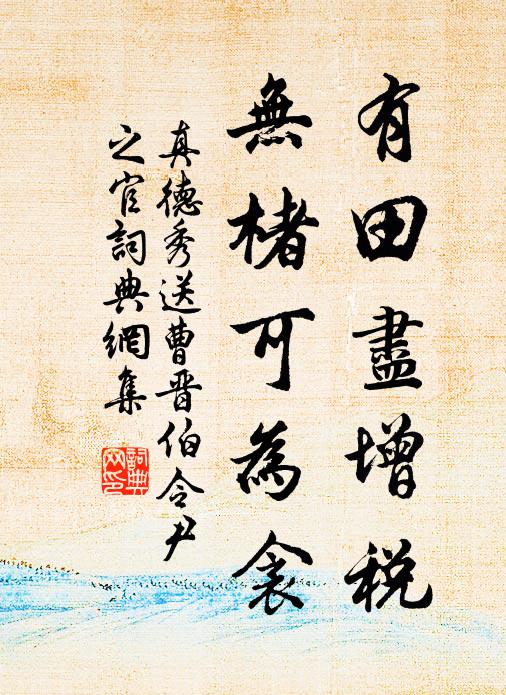 有田盡增税
無楮可為衾
真德秀送曹晋伯令尹
之官詞典網集
詞典
网印